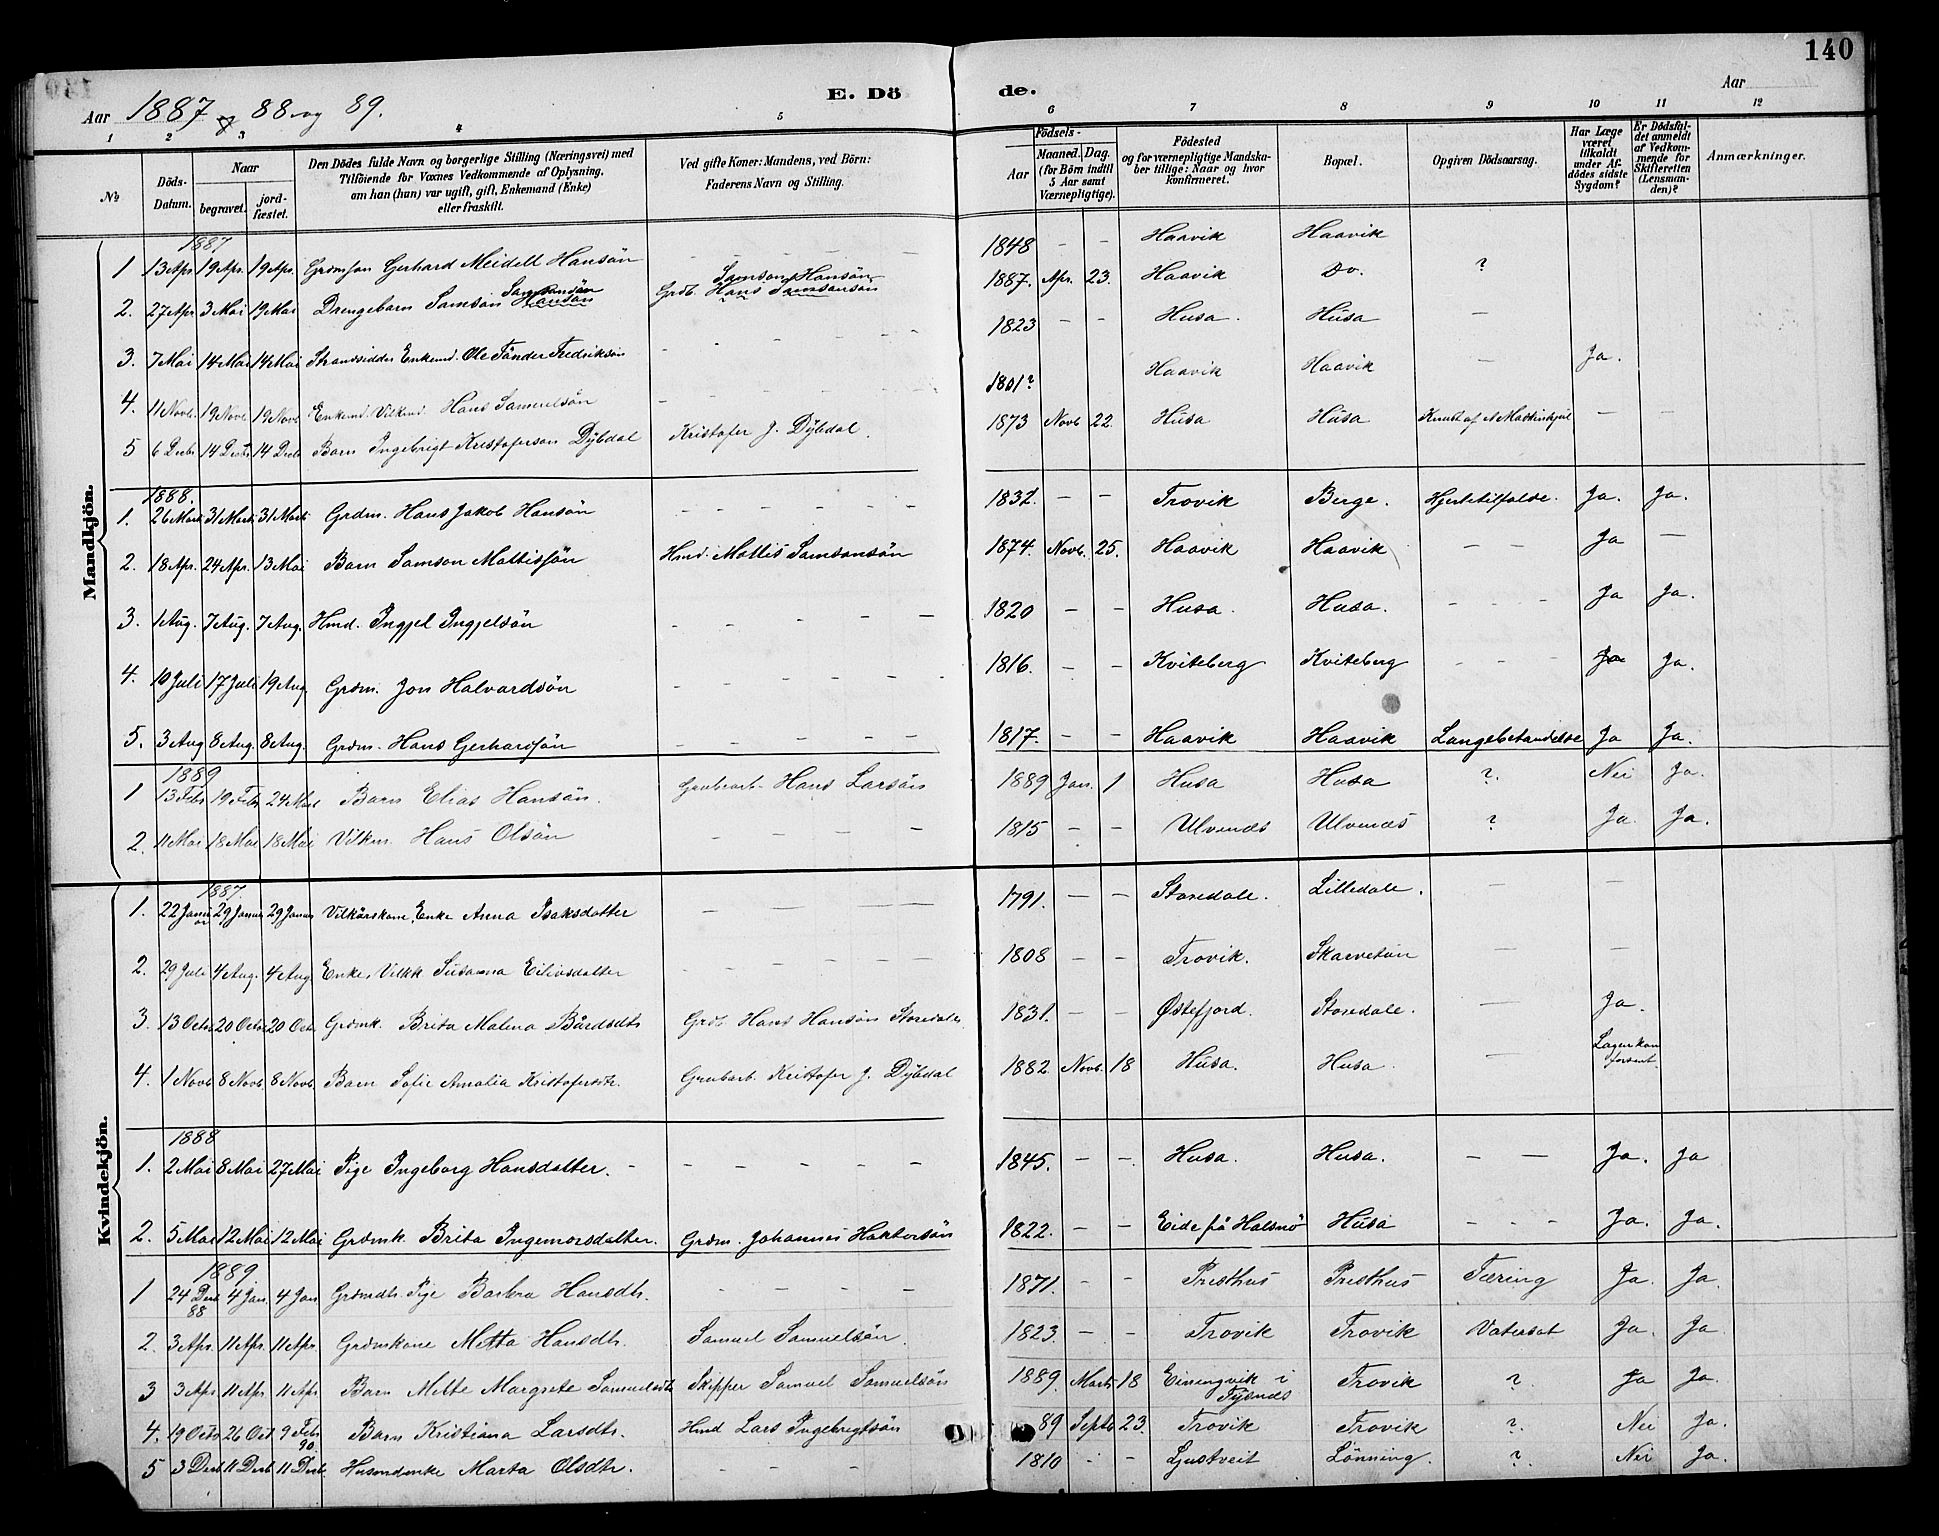 140
Aar 1887 og 88 og 89. E. Döde. Aar
1 2 3 4 5 6 7 8 9 10 11 12
№ Döds-Datum. Naar begravet. jordfæstet. Den Dödes fulde Navn og borgerlige Stilling (Næringsvei) med Tilföiende for Voxnes Vedkommende af Oplysning, om han (hun) var ugift, gift, Enkemand (Enke) eller fraskilt. Ved gifte Koner: Mandens, ved Börn: Faderens Navn og Stilling. Födsels- Aar Maaned. Dag. (for Börn indtil 5 Aar samt Værnepligtige). Födested og for værnepligtige Mandskaber tillige: Naar og hvor konfirmeret. Bopæl. Opgiven Dödsaarsag. Har Læge været tilkaldt under Afdödes sidste Sygdom? Er Dödsfaldet anmeldt af Vedkommende for Skifteretten (Lensmanden)? Anmærkninger.
Mandkjön.
1887
1 13 Apr. 19 Apr. 19 Apr. Grdm Gerhard Meidell Hansön - - - - 1848 - - Haavik Haavik
2. 27 Apr 3 Mai 19 Mai Drengebarn Samson Hansön Samsonsön Grdb. Hans Samsonsön Samson Hansön 1887. Apr. 23. Haavik Do. ?
3. 7 Mai 14 Mai 14 Mai Strandsidder Enkemd. Ole Tönder Fredriksön - - - - 1823 - - Husa. Husa -
4. 11 Novb. 19 Novb 19 Novb Enkemd. Vilkmd. Hans Samuelsön - - 1801? Haavik Haavik - Ja.
5 6 Decbr 14 Decbr 14 Decb Barn Ingebrigt Kristoferson Dÿbdal Kristofer J. Dÿbdal. 1873 Novb 22 Husa Husa Knust af - -
1888.
1. 26 Marts 31 Marts 31 Marts Grdm. Hans Jakob Hansön - - - - - - 1832. - - Trovik Berge. Hjertetilfælde. Ja. Ja.
2. 18 Apr. 24 Apr. 13 Mai Barn Samson Mattissön Hmd. Mattis Samsonsön 1874. Novb. 25. Haavik Haavik - - Ja -
3. 1 Aug. 7 Aug. 7 Aug. Hmd. Ingjel Ingjelsön - - - - - 1820 - - Husa. Husa. - - - Ja Ja.
4. 10 Juli 17 Juli 19 Aug. Grdm. Jon Halvardsön - - - - - 1816. - - Kviteberg Kviteberg - - - Ja Ja.
5. 3 Aug 8 Aug. 8 Aug. Grdm. Hans Gerhardsön - - - - - 1817. - - Haavik Haavik Lungebetændelse Ja Ja.
1889
1 13 Febr 19 Febr 24 Mars Barn Elias Hansön. Grubearb. Hans Larsön 1889 Jan. 1 Husa Husa ?. Nei Ja.
2. 11 Mai 18 Mai 18 Mai Vilkm. Hans Olsön - - - - 1815 - - Ulvenæs Ulvenæs ? Ja. Ja.
Kvindekjön.
1887.
1. 22 Januar 29 Januar 29 Januar Vilkårskone, Enke Anna Isaksdatter - - - - - 1791. - - Storedale. Lilledale. - -
2. 29 Juli 4 Aug. 4 Aug Enke, Vilkk Susanna Eilivsdatter - - - - - 1808 - - Trovik. Skarvetun - -
3. 13 Octbr 20 Octbr 20 Oct. Grdmk. Brita Malena Bårdsdtr Grdb. Hans Hansön Storedale. 1831. - - Østefjord. Storedale. - Ja.
4. 1 Novb 8 Novb 8 Novb Barn Sofie Amalia Kristofersdtr. Grubarb. Kristofer J. Dÿbdal 1882. Novb. 18 Husa. Husa. - Lægen kom forsent.
1888
1. 2 Mai 8 Mai 27 Mai Pige Ingeborg Hansdatter. - - - - - - 1845. - - Husa. Husa. - - Ja. Ja
2. 5 Mai 12 Mai 12 Mai Grdmk. Brita Ingemorsdatter. Grdm. Johannes Haktorsön 1822. - - Eide på Halsnö Husa - - - Ja. Ja.
1889
1 24 Decb 88 4 Jan. 4 Jan Grdmdtr. Pige Barbra Hansdtr. - - - - 1871. - - Præsthus Præsthus Tæring Ja. Ja.
2. 3 Apr. 11 Apr. 11 Apr. Grdmkone Metta Hansdtr. Samuel Samuelsön. 1823. - - Trovik Trovik Vatersot Ja. Ja
3 3 Apr 11 Apr 11 Apr Barn Mette Margrete Samuelsdtr Skipper Samuel Samuelsön 1889. Marts 18 Einingvik i Tysnæs Trovik ? Ja Ja.
4. 19 Octbr 26 Oct 9 Febr 90. Barn Kristiana Larsdtr. Hmd Lars Ingebrigtsön 89 Septb 23. Trovik Trovik ?. Nei Ja.
5 3 Decb 11 Decb 11 Decb Husmdenke Marta Olsdtr. - - - 1810 - - Ljustveit Lönning. ?. Nei Ja.